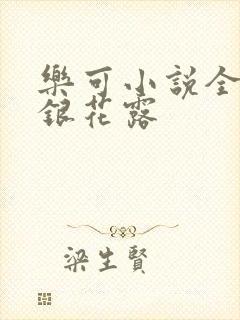 樂可小説全
銀花露
梁生賢